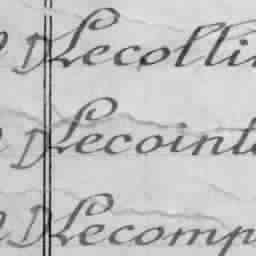 D Lecollin
D Lecointe
D Lecomp